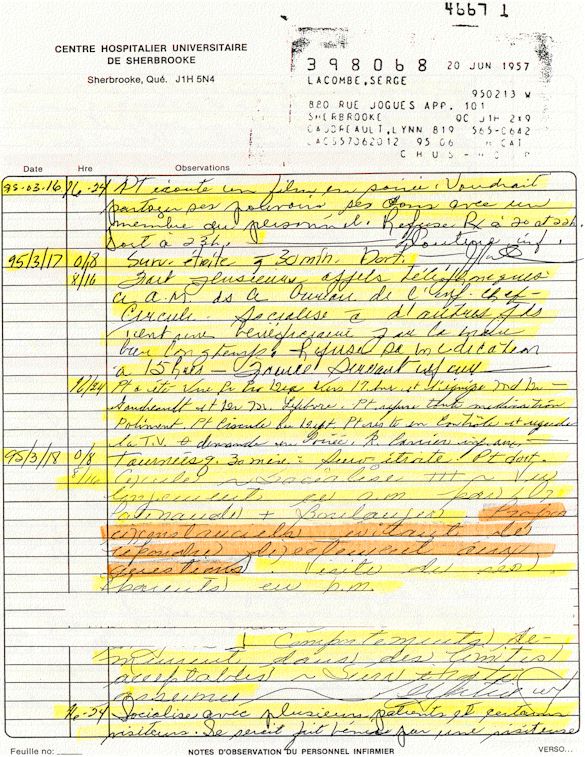 4667 1
CENTRE HOSPITALIER UNIVERSITAIRE
DE SHERBROOKE
Sherbrooke, Qué. J1H 5N4
398068 20 JUN 1957
LACOMBE, SERGE
950213 W
880 RUE JOGUES APP. 101
SHERBROOKE QC J1H 2X9
GAUDREAULT, LYNN 819 565-0642
LACS57062012 95 06 CAT
CHUS-H
Date Hre Observations
95-03-16 16-24 Pt écoute un film en soirée. Voudrait
partager ses pouvoirs ses dons avec un
membre du personnel. Refuse Rx à 20 et 22h.
Dort à 23h. inf.
95/3/17 0/8 Surv. étroite q 30 min. Dort.
8/16 Fait plusieurs appels téléphoniques
ce a.m. ds le bureau de l'inf. chef
Circule. Socialise à d'autres pts
tient une bénéficiaire par la main
bien longtemps. Refuse sa médication
à 15 hres
16/24 Pt a été vers 17 hres et
et M. Lefebvre. Pt refuse toute médication
Poliment. Pt circule au dépt. Pt reste en contrôle et regarde
la T.V. demande en soirée. R. Carrier inf.
95/3/18 0/8 Tournées q. 30 min = Surv. étroite. Pt dort.
8/16 Circule ~ Socialise +++ ~ Vu
longuement en a.m. par Drs
+ Boulanger
circonstanciels évitant de
répondre directement aux
questions Visite de ses
parents en p.m.
Comportements de-
meurent dans des limites
acceptables ~
16-24 Socialise avec plusieurs patients et certains
visiteurs. Se serait fait par une visiteuse
Feuille no: NOTES D'OBSERVATION DU PERSONNEL INFIRMIER VERSO...